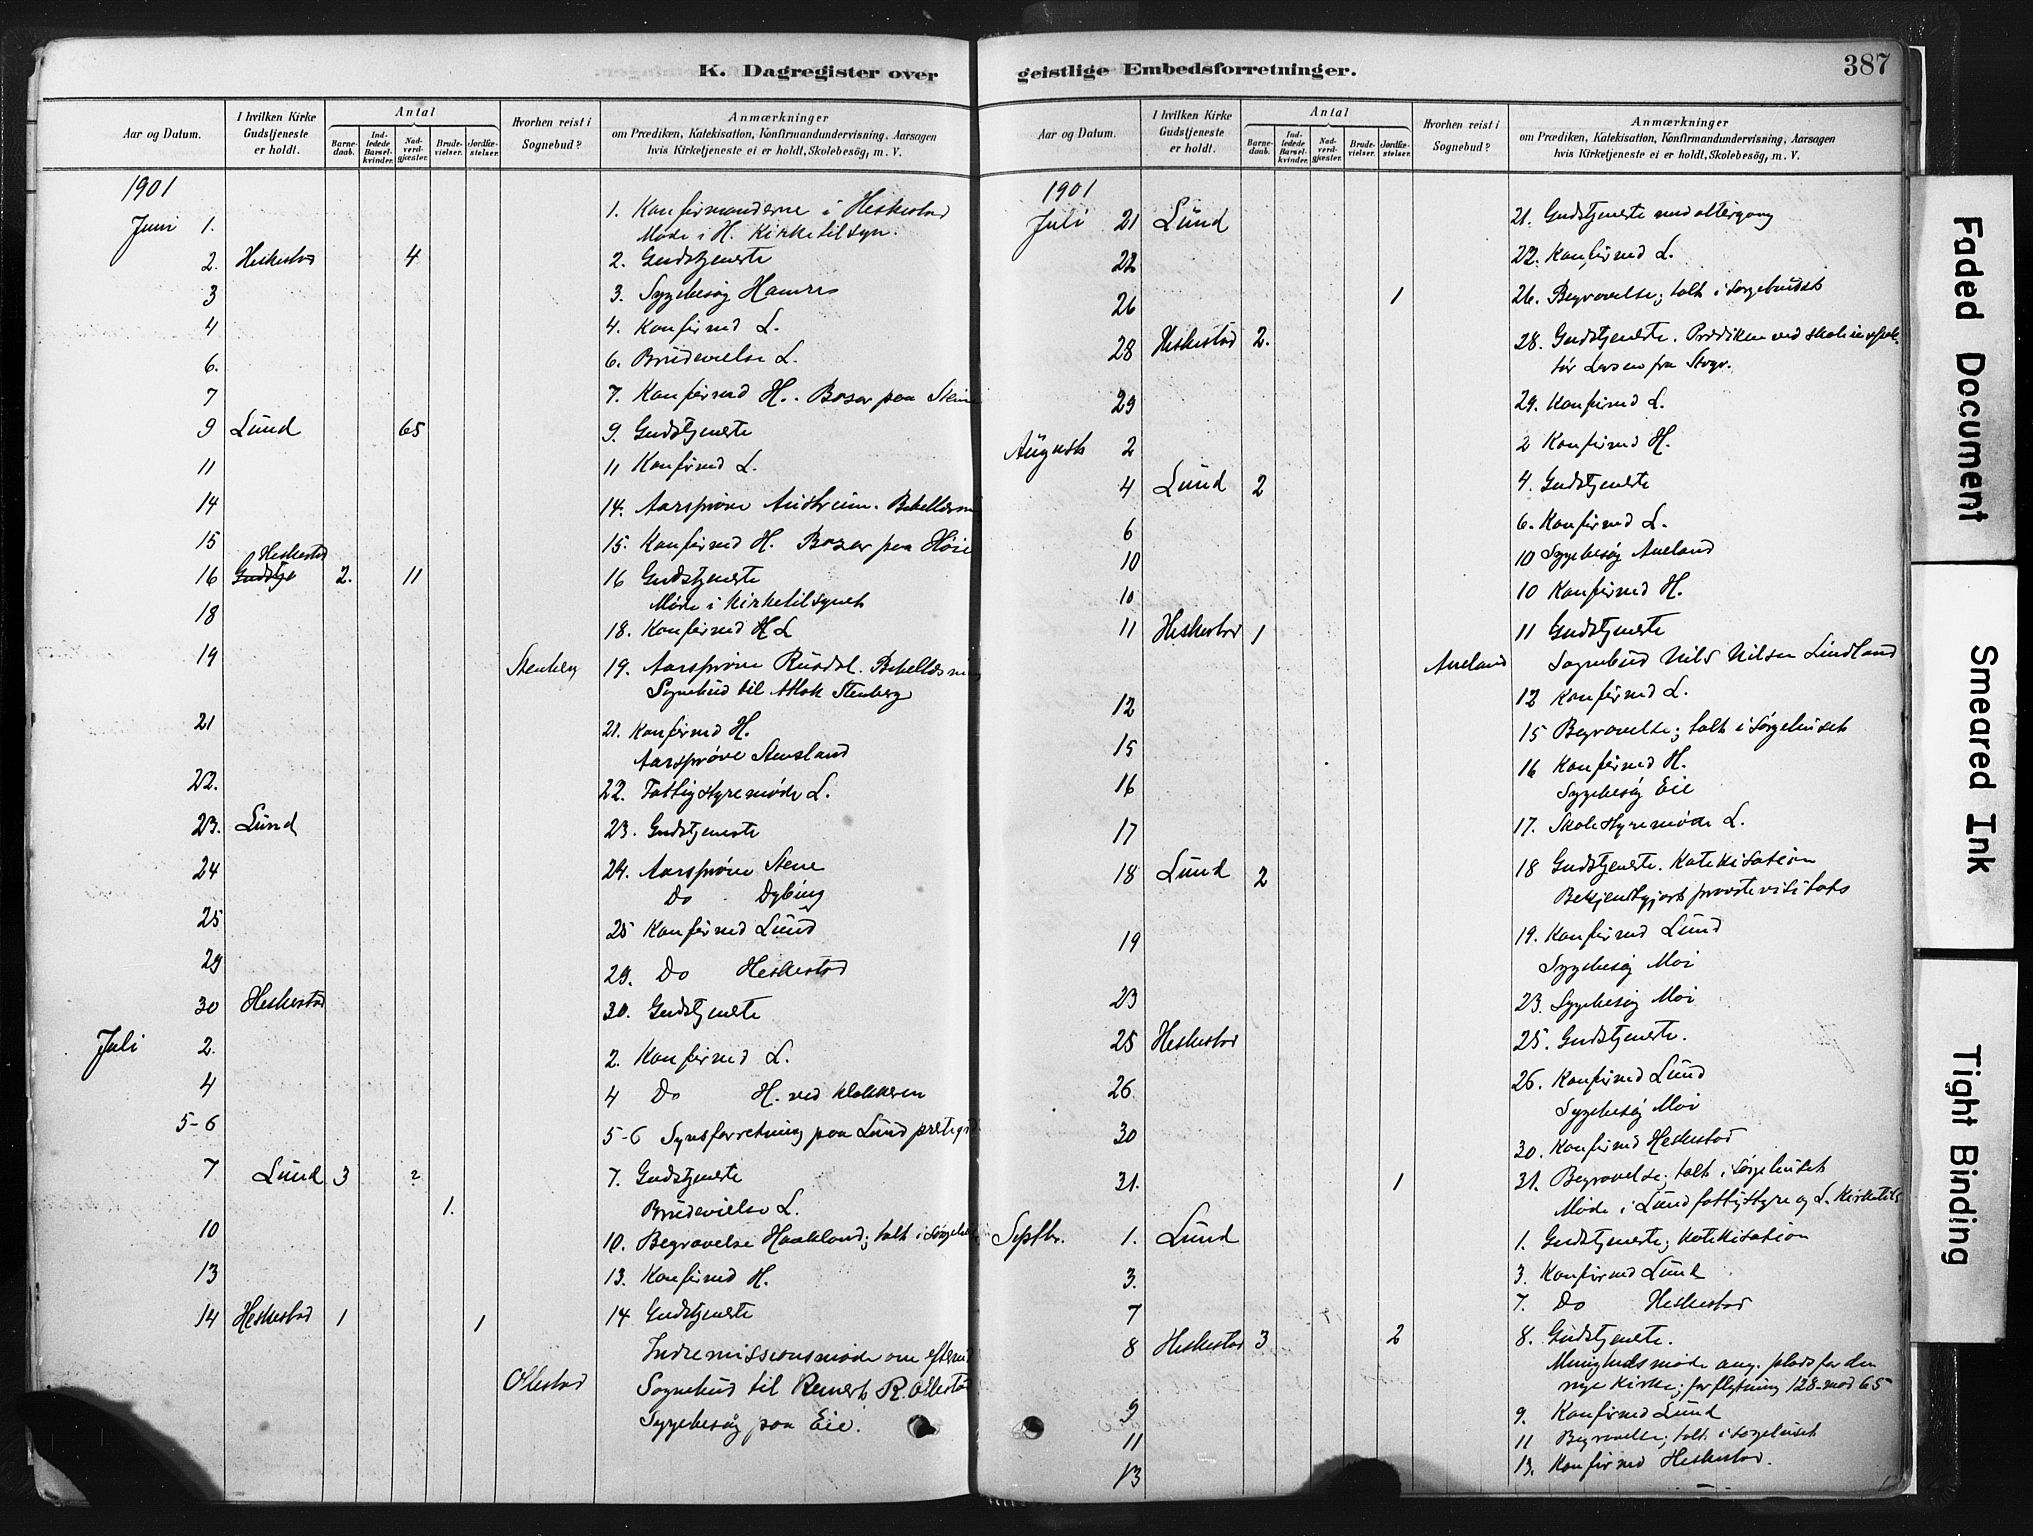 K. Dagregister over
Aar og Datum.
I hvilken Kirke Gudstjeneste er holdt.
Antal
Barnedaab.
Indledede Barselkvinder.
Nadverdgjæster.
Brudevielser.
Jordfæstelser.
Hvorhen reist i Sognebud?
Anmærkninger
om Prædiken, Katekisation, Konfirmandundervisning, Aarsagen
hvis Kirketjeneste ei er holdt, Skolebesög, m. V.
1901
Juni 1. 1. Konfirmanderne i Heskestad
Møde i H. Kirketilsyn.
2. Heskestad 4 2. Gudstjeneste
3 3. Sygebesøg Hamre
4 4. Konfirmd L.
6. 6. Brudevielse L.
7 7. Konfirmd H. Basar paa Stein
9 Lund 65 9. Gudstjeneste
11 11 Konfirmd L.
14 14. Aarsprøve Austrum. Bibellæsn
15 15. Konfirmd H. Basar paa Høie
Heskestad
16 Gudstje 2. 11 16 Gudstjeneste
Møde i Kirketilsynet
18 18. Konfirmd H L
19 Stenberg 19. Aarsprøve Rusdal. Bibellæsning
Sognebud til Stenberg
21 21. Konfirmd H.
Aarsprøve Stensland
22. 22. Fattigstyremøde L.
23. Lund 23. Gudstjeneste
24 24. Aarsprøve Stene
Do Dybing
25 25 Konfirmd Lund
29 29. Do Heskestad
30 Heskestad 30. Gudstjeneste
Juli 2. 2. Konfirmd L.
4 4 Do H. ved klokkeren
5-6 5-6 Synsforretning paa Lund prestegd
7 Lund 3 2 7. Gudstjeneste
1. Brudevielse L.
10 10. Begravelse Haukland; talt i sørgehus
13 13. Konfirmd H.
14 Heskestad 1 1 14 Gudstjeneste
Indremissionsmøde om efterm
Ollestad Sognebud til Reinert R. Ollestad
Sygebesøg paa Eie.
geistlige Embedsforretninger.
387
Aar og Datum.
I hvilken Kirke Gudstjeneste er holdt.
Antal
Barnedaab.
Indledede Barselkvinder.
Nadverdgjæster.
Brudevielser.
Jordfæstelser.
Hvorhen reist i Sognebud?
Anmærkninger
om Prædiken, Katekisation, Konfirmandundervisning, Aarsagen
hvis Kirketjeneste ei er holdt, Skolebesög, m. V.
1901
Juli 21 Lund 21. Gudstjeneste med altergang
22 22. Konfirmd L.
26 1 26. Begravelse; talt i sørgehuset
28 Heskestad 2. 28. Gudstjeneste. Prædiken ved skoleinspek-
tør Larsen fra Stvgr.
29 29. Konfirmd L.
August 2 2 Konfirmd H.
4 Lund 2 4. Gudstjeneste
6 6. Konfirmd L.
10 10 Sygebesøg Aueland
10 10 Konfirmd H.
11 Heskestad 1 11 Gudstjeneste
Aueland Sognebud Nils Nilsen Lindland
12 12 Konfirmd L.
15 15 Begravelse; talt i sørgehuset
16 16 Konfirmd H.
Sygebesøg Eie
17 17. Skolestyremøde L.
18 Lund 2 18 Gudstjeneste. Katekisation
Bekjendtgjort provstevisitats
19 19. Konfirmd Lund
Sygebesøg Moi
23 23. Sygebesøg Moi
25 Heskestad 25. Gudstjeneste.
26 26. Konfirmd Lund
Sygebesøg Moi
30 30. Konfirmd Heskestad
31. 1 31. Begravelse; talt i sørgehuset
Møde i Lund fattigstyre og L. Kirketils
Septbr. 1. Lund 1. Gudstjeneste; katekisation
3. 3. Konfirmd Lund
7 7. Do Heskestad
8 Heskestad 3 2 8. Gudstjeneste.
Menighedsmøde ang. plads for den
nye kirke; for flytning 128 mod 65
9 9. Konfirmd Lund
11 11 Begravelse; talt i sørgehuset
13 13. Konfirmd Heskestad.
Faded Document
Smeared Ink
Tight Binding